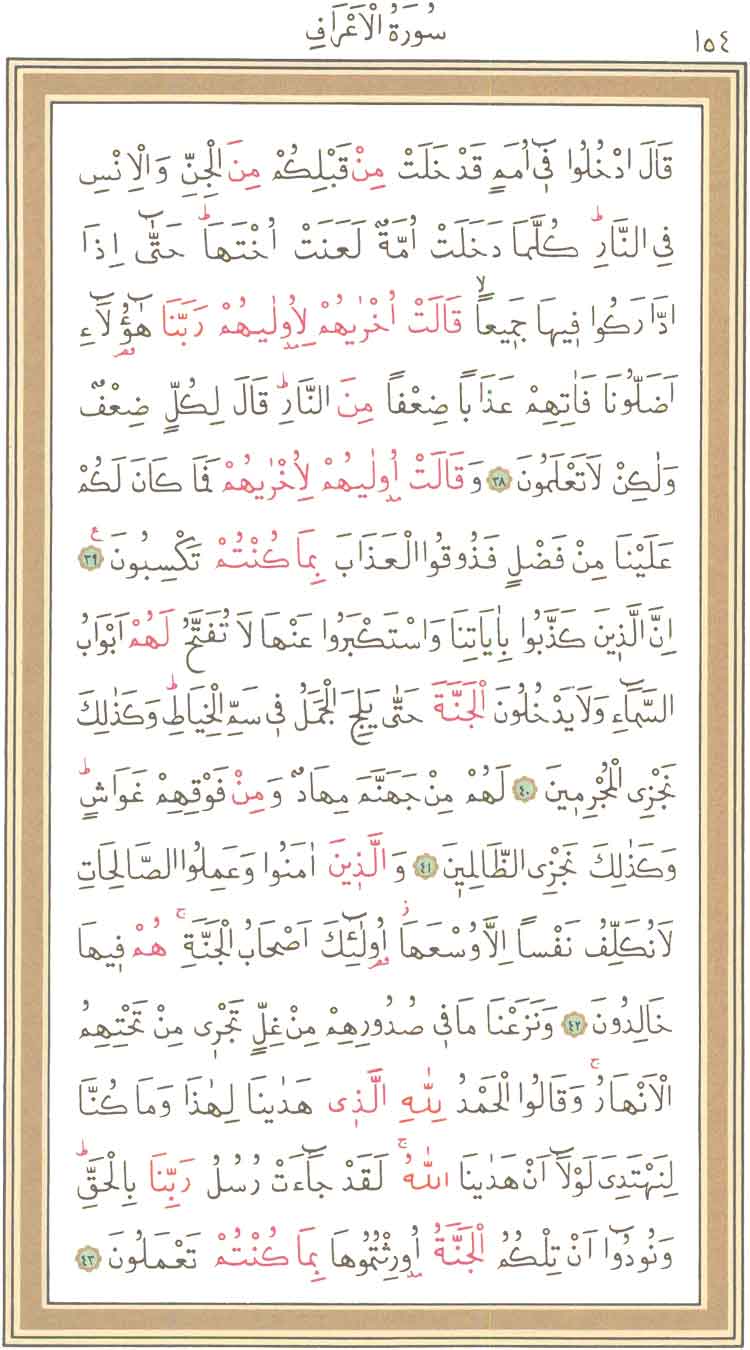 سُورَةُ الْاَعْرَافِ
١٥٤
قَالَ ادْخُلُوا فٓى اُمَمٍ قَدْ خَلَتْ مِنْ قَبْلِكُمْ مِنَ الْجِنِّ وَالْاِنْسِ
فِى النَّارِۜ كُلَّمَا دَخَلَتْ اُمَّةٌ لَعَنَتْ اُخْتَهَاۜ حَتّٰٓى اِذَا
ادَّارَكُوا فٖيهَا جَمٖيعاًۙ قَالَتْ اُخْرٰيهُمْ لِاُو۫لٰيهُمْ رَبَّنَا هٰٓؤُ۬لَٓاءِ
اَضَلُّونَا فَاٰتِهِمْ عَذَاباً ضِعْفاً مِنَ النَّارِۜ قَالَ لِكُلٍّ ضِعْفٌ
وَلٰكِنْ لَا تَعْلَمُونَ ﴿٣٨﴾ وَقَالَتْ اُو۫لٰيهُمْ لِاُخْرٰيهُمْ فَمَا كَانَ لَكُمْ
عَلَيْنَا مِنْ فَضْلٍ فَذُوقُوا الْعَذَابَ بِمَا كُنْتُمْ تَكْسِبُونَ ﴿٣٩﴾ ع
اِنَّ الَّذٖينَ كَذَّبُوا بِاٰيَاتِنَا وَاسْتَكْبَرُوا عَنْهَا لَا تُفَتَّحُ لَهُمْ اَبْوَابُ
السَّمَٓاءِ وَلَا يَدْخُلُونَ الْجَنَّةَ حَتّٰى يَلِجَ الْجَمَلُ فٖى سَمِّ الْخِيَاطِۜ وَكَذٰلِكَ
نَجْزِى الْمُجْرِمٖينَ ﴿٤٠﴾ لَهُمْ مِنْ جَهَنَّمَ مِهَادٌ وَمِنْ فَوْقِهِمْ غَوَاشٍۜ
وَكَذٰلِكَ نَجْزِى الظَّالِمٖينَ ﴿٤١﴾ وَالَّذٖينَ اٰمَنُوا وَعَمِلُوا الصَّالِحَاتِ
لَا نُكَلِّفُ نَفْساً اِلَّا وُسْعَهَاۘ اُو۬لٰٓئِكَ اَصْحَابُ الْجَنَّةِۚ هُمْ فٖيهَا
خَالِدُونَ ﴿٤٢﴾ وَنَزَعْنَا مَا فٖى صُدُورِهِمْ مِنْ غِلٍّ تَجْرٖى مِنْ تَحْتِهِمُ
الْاَنْهَارُۚ وَقَالُوا الْحَمْدُ لِلّٰهِ الَّذٖى هَدٰينَا لِهٰذَا وَمَا كُنَّا
لِنَهْتَدِىَ لَوْلَٓا اَنْ هَدٰينَا اللّٰهُۚ لَقَدْ جَٓاءَتْ رُسُلُ رَبِّنَا بِالْحَقِّۜ
وَنُودُٓوا اَنْ تِلْكُمُ الْجَنَّةُ اُو۫رِثْتُمُوهَا بِمَا كُنْتُمْ تَعْمَلُونَ ﴿٤٣﴾